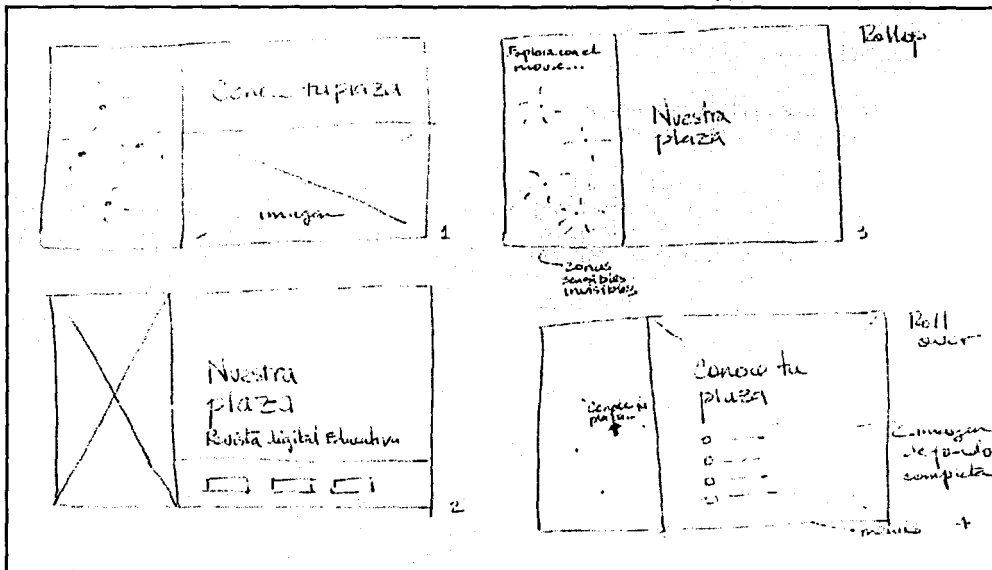 Conoce tu plaza
imagen
1
Nuestra
plaza
Revista digital Educativa
2
Explora con el
mouse...
Nuestra
plaza
zonas
sensibles
invisibles
3
Roll
over
Conoce tu
plaza...
Conoce tu
plaza
imagen
completa